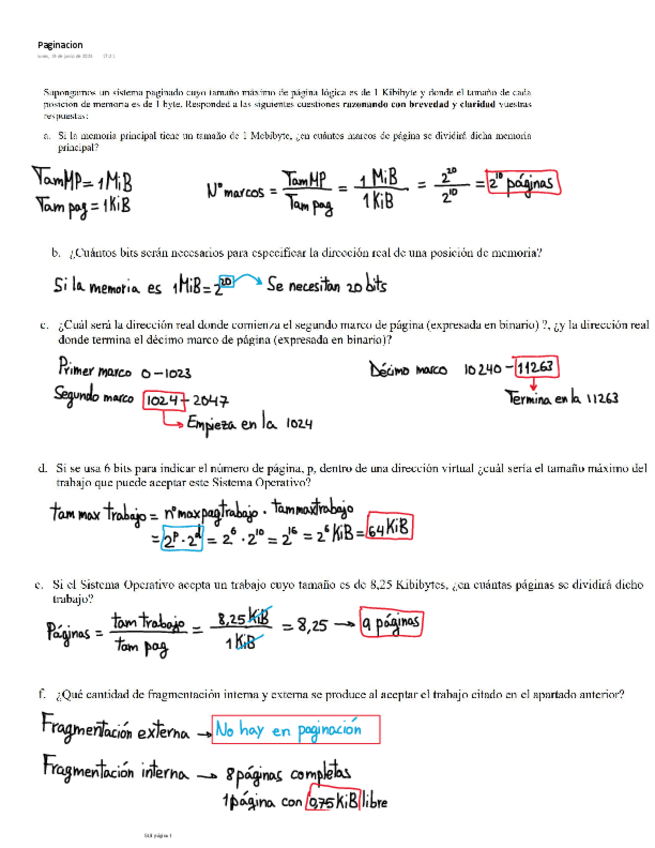 Paginacion
lunes, 19 de junio de 2023
Supongamos un sistema paginado cuyo tamaño máximo de página lógica es de 1 Kibibyte y donde el tamaño de cada
posición de memoria es de 1 byte. Responded a las siguientes cuestiones razonando con brevedad y claridad vuestras
respuestas:
a. Si la memoria principal tiene un tamaño de 1 Mebibyte, ¿en cuántos marcos de página se dividirá dicha memoria
principal?
TamMP = 1 MiB
Tam pag = 1 KiB
Nº marcos = TamMP / Tam pag = 1 MiB / 1 KiB = 2^20 / 2^10 = 2^10 páginas
b. ¿Cuántos bits serán necesarios para especificar la dirección real de una posición de memoria?
Si la memoria es 1MiB = 2^20 → Se necesitan 20 bits
c. ¿Cuál será la dirección real donde comienza el segundo marco de página (expresada en binario) ?, ¿y la dirección real
donde termina el décimo marco de página (expresada en binario)?
Primer marco 0 - 1023
Segundo marco 1024 - 2047
Empieza en la 1024
Décimo marco 10240 - 11263
Termina en la 11263
d. Si se usa 6 bits para indicar el número de página, p, dentro de una dirección virtual ¿cuál sería el tamaño máximo del
trabajo que puede aceptar este Sistema Operativo?
tam max trabajo = nº maxpagtrabajo · tammaxtrabajo
= 2^p · 2^d = 2^6 · 2^10 = 2^16 = 2^6 KiB = 64 KiB
e. Si el Sistema Operativo acepta un trabajo cuyo tamaño es de 8,25 Kibibytes, ¿en cuántas páginas se dividirá dicho
trabajo?
Páginas = tam trabajo / tam pag = 8,25 KiB / 1 KiB = 8,25 → 9 páginas
f. ¿Qué cantidad de fragmentación interna y externa se produce al aceptar el trabajo citado en el apartado anterior?
Fragmentación externa → No hay en paginación
Fragmentación interna → 8 páginas completas
1 página con 0,75 KiB libre